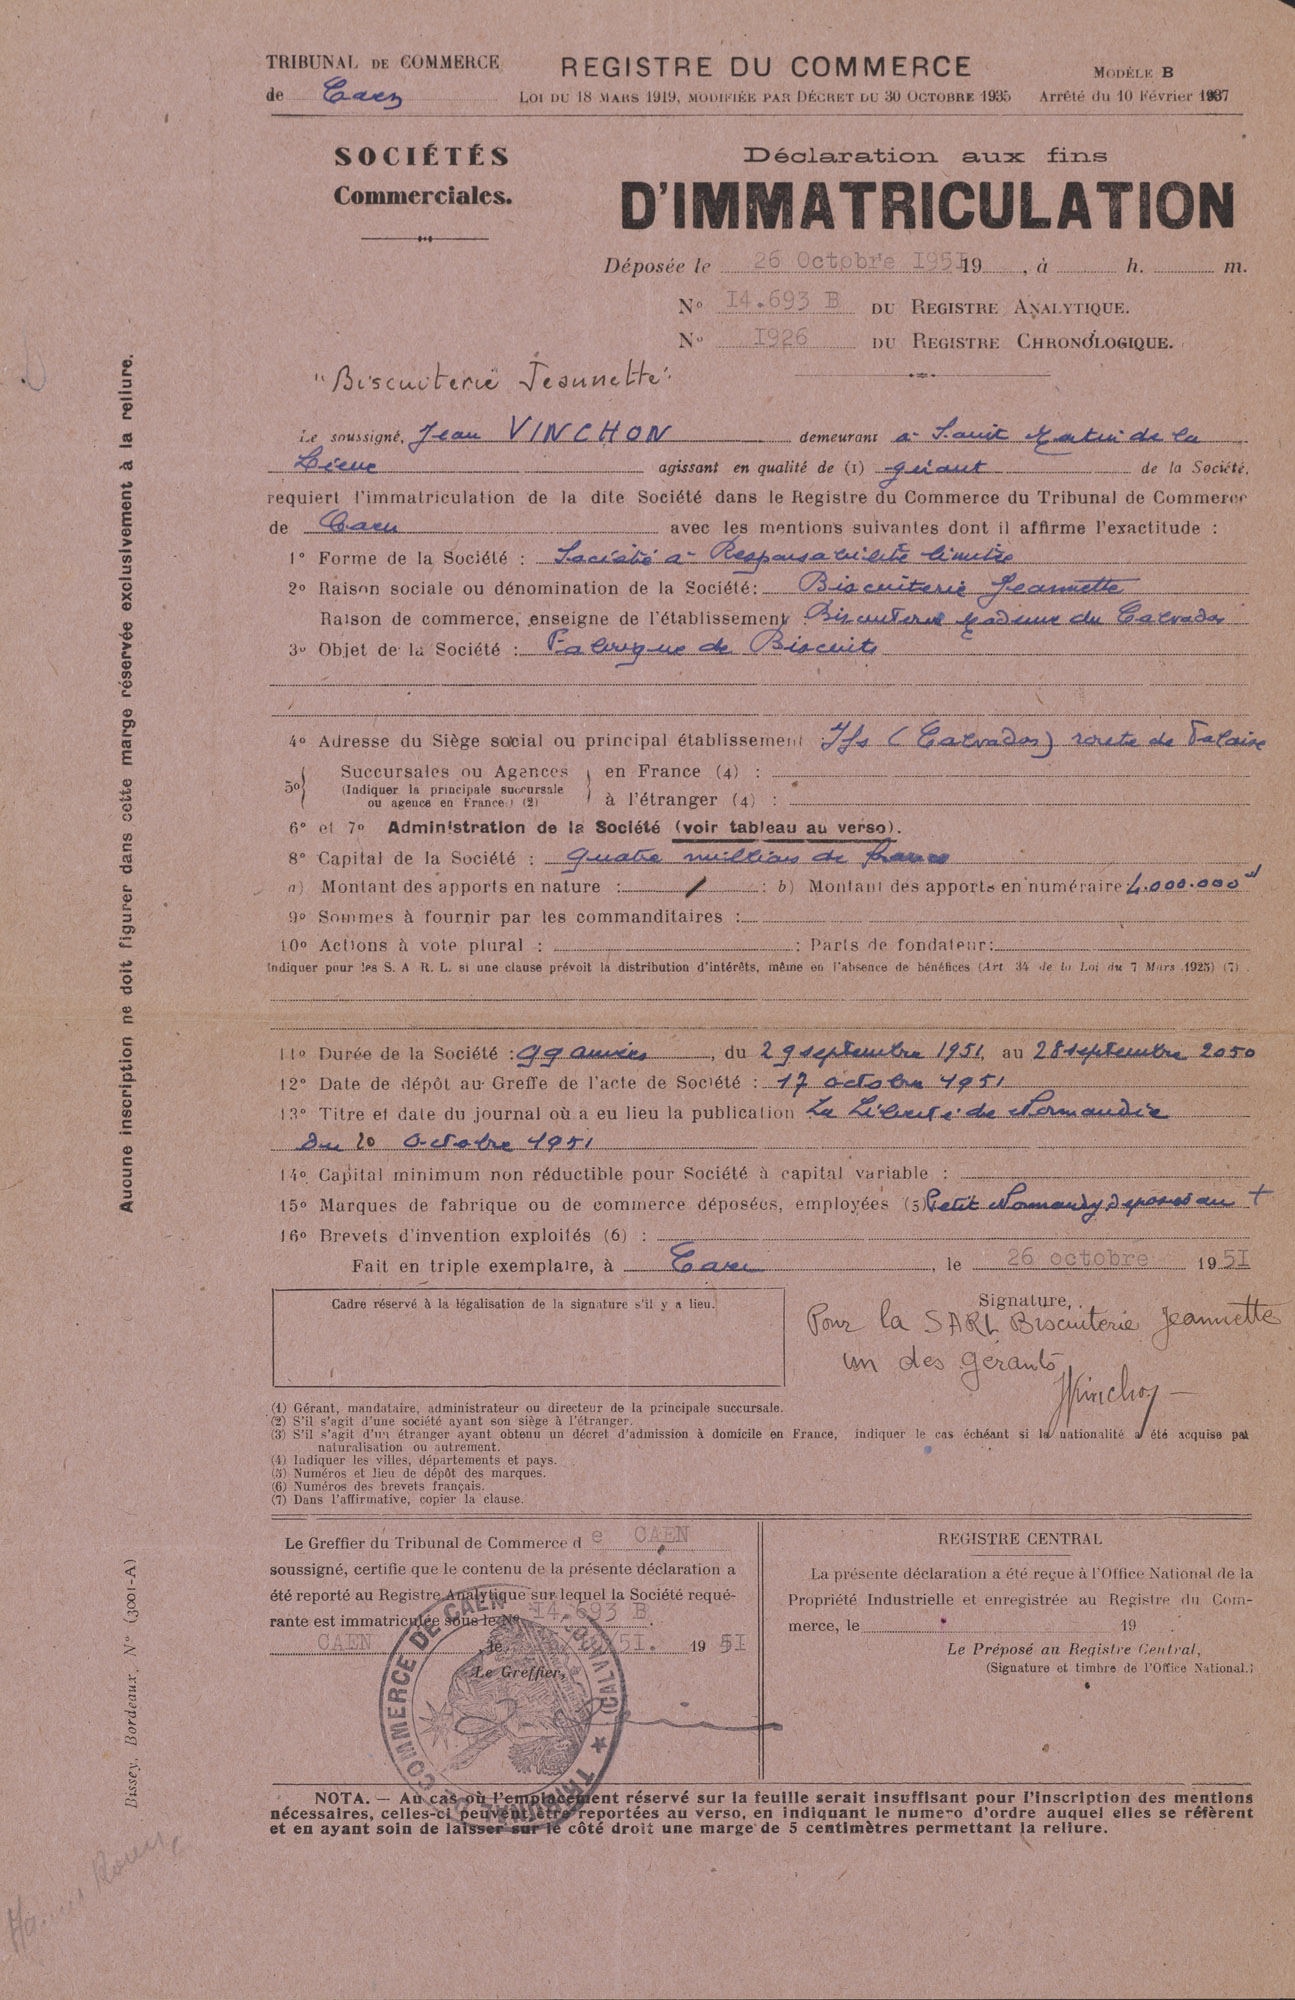 TRIBUNAL DE COMMERCE
de Caen
REGISTRE DU COMMERCE
LOI DU 18 MARS 1919, MODIFIÉE PAR DÉCRET DU 30 OCTOBRE 1935
MODÈLE B
Arrêté du 10 Février 1937
SOCIÉTÉS
Commerciales.
Déclaration aux fins
D'IMMATRICULATION
Déposée le 26 Octobre 1951 19 , à h. m.
No 14.693 B DU REGISTRE ANALYTIQUE.
No 1926 DU REGISTRE CHRONOLOGIQUE.
"Biscuiterie Jeannette"
Le soussigné, Jean VINCHON demeurant à Saint Martin de la
Lieue agissant en qualité de (1) gérant de la Société,
requiert l'immatriculation de la dite Société dans le Registre du Commerce du Tribunal de Commerce
de Caen avec les mentions suivantes dont il affirme l'exactitude :
1° Forme de la Société : Société à Responsabilité limitée
2° Raison sociale ou dénomination de la Société: Biscuiterie Jeannette
Raison de commerce, enseigne de l'établissement : Biscuiterie Moderne du Calvados
3° Objet de la Société : Fabrique de Biscuits
4° Adresse du Siège social ou principal établissement : Ifs (Calvados) route de Falaise
5° Succursales ou Agences
(Indiquer la principale succursale
ou agence en France.) (2)
en France (4) :
à l'étranger (4) :
6° et 7° Administration de la Société (voir tableau au verso).
8° Capital de la Société : quatre millions de francs
a) Montant des apports en nature : / : b) Montant des apports en numéraire : 4.000.000
9° Sommes à fournir par les commanditaires :
10° Actions à vote plural : : Parts de fondateur:
Indiquer pour les S. A R. L. si une clause prévoit la distribution d'intérêts, même en l'absence de bénéfices (Art 34 de la Loi du 7 Mars 1925) (7) .
11° Durée de la Société : 99 années , du 29 septembre 1951 au 28 septembre 2050
12° Date de dépôt au Greffe de l'acte de Société : 17 octobre 1951
13° Titre et date du journal où a eu lieu la publication La Liberté de Normandie
du 20 octobre 1951
14° Capital minimum non réductible pour Société à capital variable :
15° Marques de fabrique ou de commerce déposées, employées (5) Petit Normandy déposés au +
16° Brevets d'invention exploités (6) :
Fait en triple exemplaire, à Caen , le 26 octobre 1951
Cadre réservé à la légalisation de la signature s'il y a lieu.
Signature,
Pour la SARL Biscuiterie Jeannette
un des gérants
JVinchon
(1) Gérant, mandataire, administrateur ou directeur de la principale succursale.
(2) S'il s'agit d'une société ayant son siège à l'étranger.
(3) S'il s'agit d'un étranger ayant obtenu un décret d'admission à domicile en France, indiquer le cas échéant si la nationalité a été acquise par
naturalisation ou autrement.
(4) Indiquer les villes, départements et pays.
(5) Numéros et lieu de dépôt des marques.
(6) Numéros des brevets français.
(7) Dans l'affirmative, copier la clause.
Le Greffier du Tribunal de Commerce de CAEN
soussigné, certifie que le contenu de la présente déclaration a
été reporté au Registre Analytique sur lequel la Société requé-
rante est immatriculée sous le No 14.693 B
CAEN , le /51. 1951
Le Greffier,
TRIBUNAL DE COMMERCE DE CAEN (CALVADOS)
REGISTRE CENTRAL
La présente déclaration a été reçue à l'Office National de la
Propriété Industrielle et enregistrée au Registre du Com-
merce, le 19 .
Le Préposé au Registre Central,
(Signature et timbre de l'Office National.)
NOTA. — Au cas où l'emplacement réservé sur la feuille serait insuffisant pour l'inscription des mentions
nécessaires, celles-ci peuvent être reportées au verso, en indiquant le numéro d'ordre auquel elles se réfèrent
et en ayant soin de laisser sur le côté droit une marge de 5 centimètres permettant la reliure.
Aucune inscription ne doit figurer dans cette marge réservée exclusivement à la reliure.
Bissey, Bordeaux, N° (3001-A)